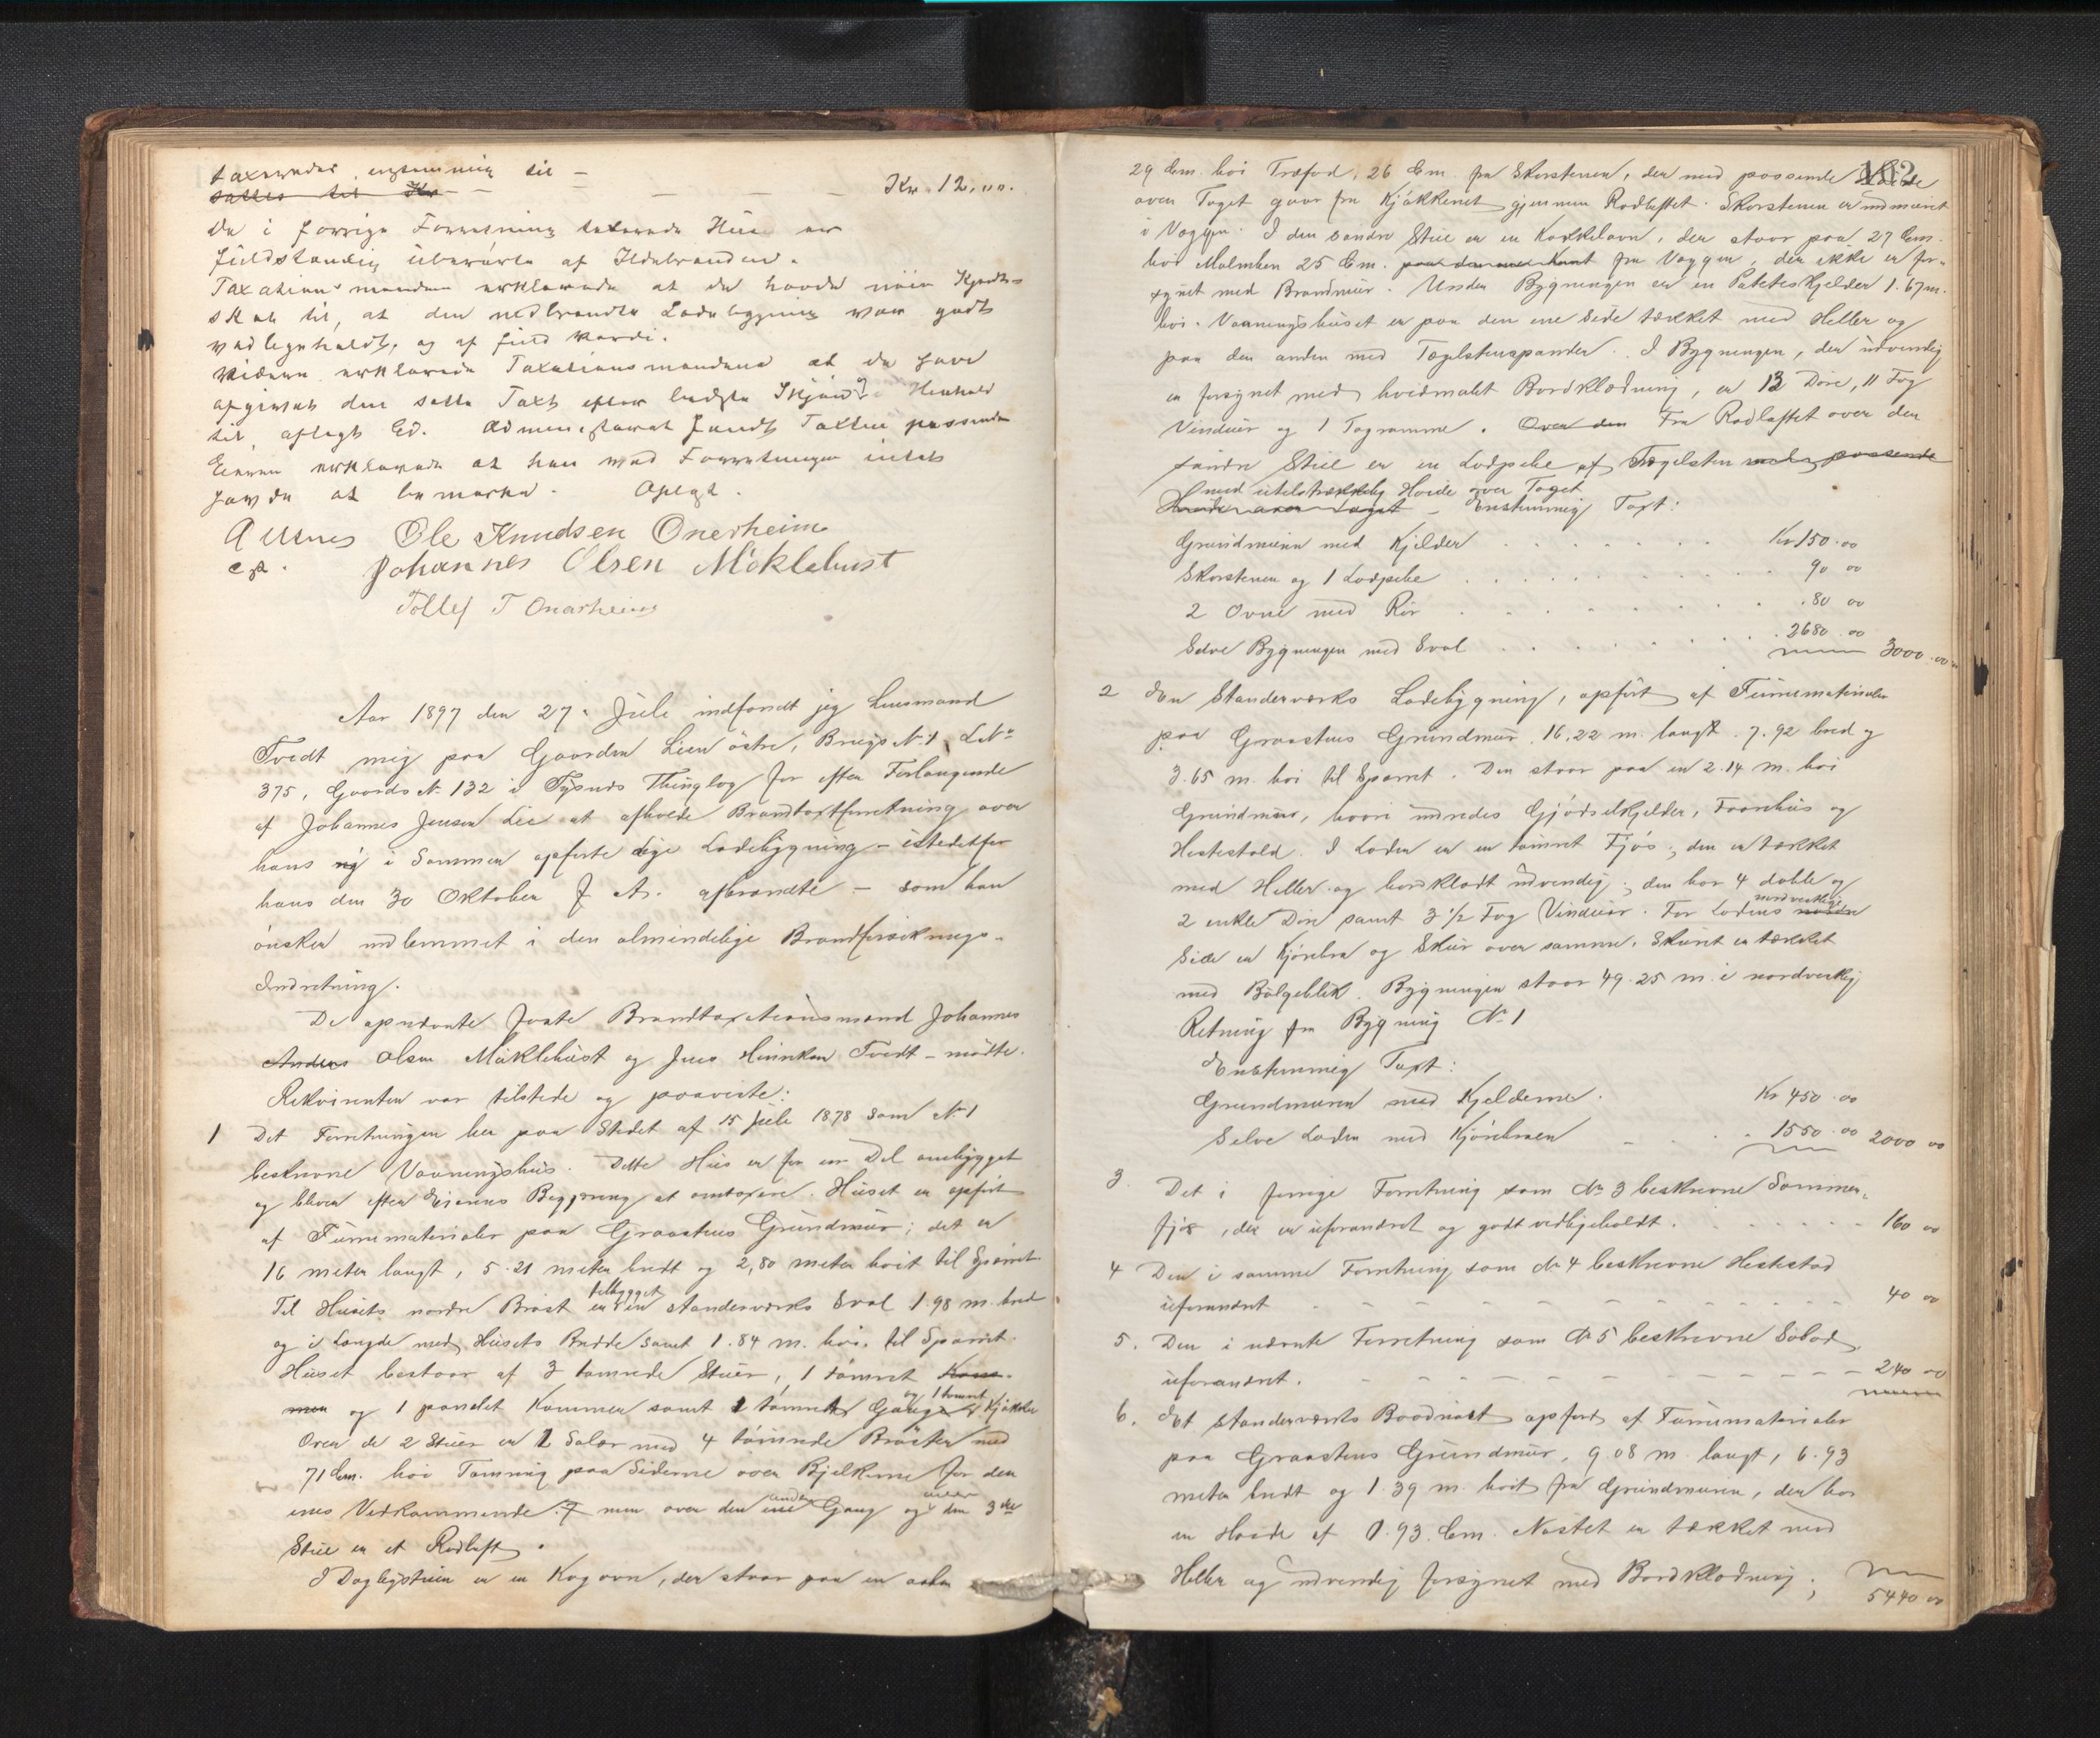 taxeredes enstemmig til –
sattes til Kr – – – – Kr. 12,00.
De i forrige Forretning taxerede Huse er
fuldstændig uberørte af Ildebranden.
Taxationsmændene erklærede at de havde nøie Kjend-
skab til, at den nedbrændte Ladebygning var godt
vedligeholdt, og af fuld Værdi.
Videre erklærede Taxationsmændene at de have
afgivet den satte Taxt efter bedste Skjøn i Henhold
til aflagt Ed. Administrator fandt Taxten passende
Eieren erklærede at han ved Forretningen intet
havde at bemærke. Oplæst.
Ole Knudsen Onerheim
Johannes Olsen Møklebust
Tollef T Onarheim
Aar 1897 den 27. Juli indfandt jeg Lensmand
Tvedt mig paa Gaarden Lien østre, Brugs No 1 LNo
375, Gaards No 132 i Tysnes Thinglag for efter Forlangende
af Johannes Jensen Lie at afholde Brandtaxtforretning over
hans ny i Sommer opførte Ladebygning – istedetfor
hans den 30 Oktober f. A. afbrændte – som han
ønsker indlemmet i den almindelige Brandforsikrings-
Indretning.
De opnævnte faste Brandtaxationsmænd Johannes
Anders Olsen Møklebust og Jens Hinriksen Tvedt – mødte.
Rekvirenten var tilstede og paaviste:
1 Det Forretningen her paa Stedet af 15 Juli 1878 som No 1
beskrevne Vaaningshus. Dette Hus er for en Del ombygget
og bliver efter Eierens Begjæring at omtaxere. Huset er opført
af Furumaterialer paa Graastens Grundmur; det er
16 meter langt, 5.21 meter bredt og 2,80 meter høit til Sparret
Til Husets nordre Brøst er tilbygget en standerværks Sval 1.98 m. bred
og i Længde med Husets Bredde samt 1.84 m. høi til Sparret.
Huset bestaar af 3 tømrede Stuer, 1 tømret Kam-
mer og 1 panelet Kammer samt 1 tømret Gang og 1 tømret Kjøkken
Over de 2 Stuer er 1 Salær med 4 tømrede Brøster med
71 Cm. høi Tømring paa Siderne over Bjelkerne for den
enes Vedkommende. men over den ene anden Gang og over den 3die
Stue er et Rødloft.
I Dagligstuen er en Kogovn, der staar paa en
182
29 Cm. høi Træfod, 26 Cm. fra Skorstenen, der med passende Høide
over Taget gaar fra Kjøkkenet gjennem Rødloftet. Skorstenen er indmuret
i Væggen. I den søndre Stue er en Kakkelovn, der staar paa 27 Cm.
høi Malmben 25 Cm. paa den ene Kant fra Væggen, der ikke er for-
synet med Brandmur. Under Bygningen er en Poteteskjelder 1.67 m.
høi. Vaaningshuset er paa den ene Side tækket med Heller og
paa den anden med Tægelstenspander. I Bygningen, der udvendig
er forsynet med hvidmalet Bordklædning, er 13 Døre, 11 Fag
Vinduer og 1 Tagramme. Over den Fra Rødloftet over den
søndre Stue er en Ludpibe af Tægelsten med passende
med utilstrækkelig Høide over Taget
Høide over Taget – Enstemmig Taxt:
Grundmuren med Kjelder . . . . . Kr 150.00
Skorstenen og 1 Ludpibe . . . . . 90 00
2 Ovne med Rør . . . . . 80 00
Selve Bygningen med Sval . . . . . 2680.00 3000.00
2 Den Standerværks Ladebygning, opført af Furumaterialer
paa Graastens Grundmur 16.22 m. langt, 7.92 bred og
3.65 m. høi til Sparret. Den staar paa en 2.14 m. høi
Grundmur, hvori indredes Gjødselkjelder, Faarehus og
Hestestald. I Laden er en tømret Fjøs; den er tækket
med Heller og bordklædt udvendig; den har 4 doble og
2 enkle Døre samt 3 1/2 Fag Vinduer. For Ladens nordre nordvestlige
Side er Kjørebro og Skur over samme. Skuret er tækket
med Bølgeblik. Bygningen staar 49.25 m. i nordvestlig
Retning fra Bygning No 1
Enstemmig Taxt:
Grundmuren med Kjelderne. Kr 450.00
Selve Laden med Kjørebroen – . . . 1550.00 2000 00
3. Det i forrige Forretning som No 3 beskrevne Sommer-
fjøs, der er uforandret og godt vedligeholdt . . . . 160 00
4 Den i samme Forretning som No 4 beskrevne Hestestad
uforandret – – – – – – 40 00
5. Den i nævnte Forretning som No 5 beskrevne Søbod
uforandret. – – – – – – 240 00
6. Det standerværks Baadnøst opført af Furumaterialer
paa Graastens Grundmur, 9.08 m. langt, 6.93
meter bredt og 1.39 m. høit fra Grundmuren, der har
en Høide af 0.93 Cm. Nøstet er tækket med
Heller og udvendig forsynet med Bordklædning;
5440 00